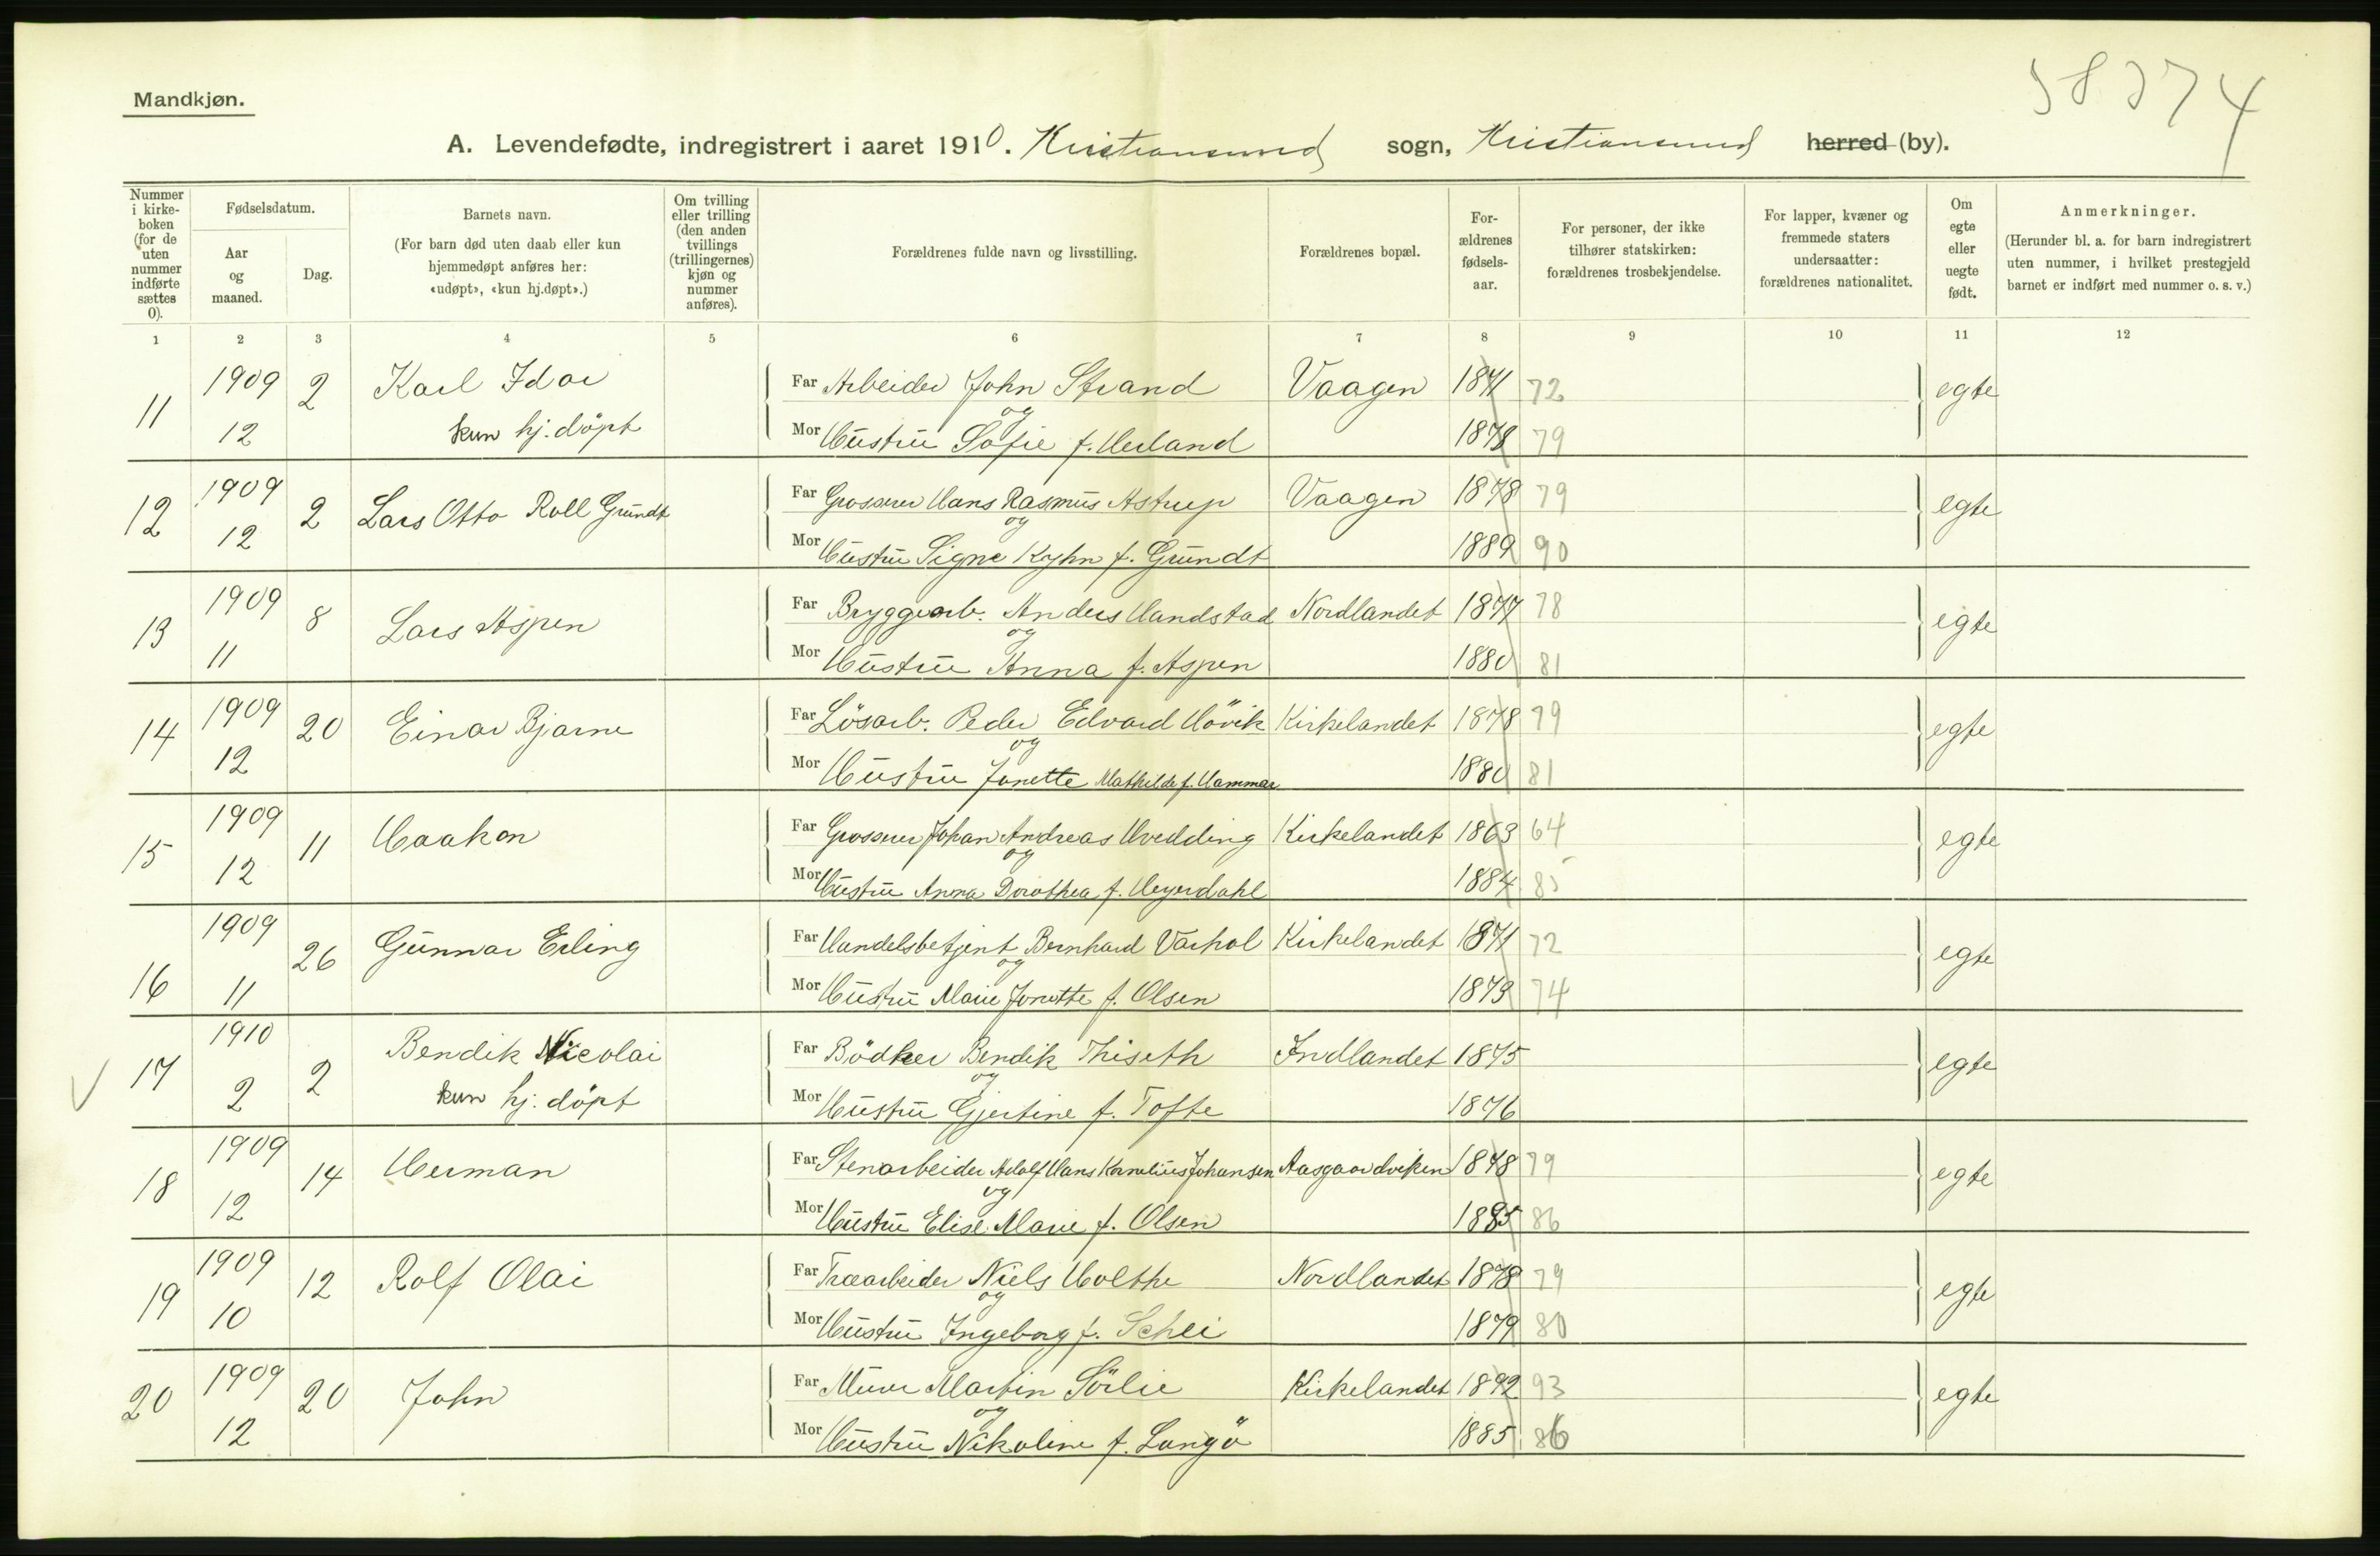 Mandkjøn.
58374
A. Levendefødte, indregistrert i aaret 1910. Kristiansund sogn, Kristiansund herred (by).
Nummer i kirke-boken (for de uten nummer indførte sættes 0).
Fødselsdatum.
Aar og maaned.
Dag.
Barnets navn.
(For barn død uten daab eller kun hjemmedøpt anføres her: «udøpt», «kun hj.døpt».)
Om tvilling eller trilling (den anden tvillings (trillingernes) kjøn og nummer anføres).
Forældrenes fulde navn og livsstilling.
Forældrenes bopæl.
For-ældrenes fødsels-aar.
For personer, der ikke tilhører statskirken: forældrenes trosbekjendelse.
For lapper, kvæner og fremmede staters undersaatter: forældrenes nationalitet.
Om egte eller uegte født.
Anmerkninger.
(Herunder bl. a. for barn indregistrert uten nummer, i hvilket prestegjeld barnet er indført med nummer o. s. v.)
1 2 3 4 5 6 7 8 9 10 11 12
11 1909 2 Karl Idar Far Arbeider John Strand Vaagen 1871 72 egte
og
12 kun hj. döpt Mor Hustru Sofie f. Herland 1878 79
12 1909 2 Lars Otto Roll Grundt Far Grosserer Hans Rasmus Astrup Vaagen 1878 79 egte
og
12 Mor Hustru Signe Kyhn f. Grundt 1889 90
13 1909 8 Lars Aspen Far Bryggearb. Anders Handstad Nordlandet 1877 78 egte
og
11 Mor Hustru Anna f. Aspen 1880 81
14 1909 20 Einar Bjarne Far Lösarb. Peder Edvard Hövik Kirkelandet 1878 79 egte
og
12 Mor Hustru Jonette Mathilde f. Hammer 1880 81
15 1909 11 Haakon Far Grosserer Johan Andreas Hvedding Kirkelandet 1863 64 egte
og
12 Mor Hustru Anna Dorothea f. Heyerdahl 1884 85
16 1909 26 Gunnar Erling Far Handelsbetjent Bernhard Varhol Kirkelandet 1871 72 egte
og
11 Mor Hustru Marie Jonette f. Olsen 1873 74
17 1910 2 Bendik Nicolai Far Bödker Bendik Thiseth Indlandet 1875 egte
og
2 kun hj. döpt Mor Hustru Gjertine f. Tofte 1876
18 1909 14 Herman Far Stenarbeider Adolf Hans Kornelius Johansen Aasgaardviken 1878 79 egte
og
12 Mor Hustru Elise Marie f. Olsen 1885 86
19 1909 12 Rolf Olai Far Træarbeider Niels Holthe Nordlandet 1878 79 egte
og
10 Mor Hustru Ingeborg f. Schei 1879 80
20 1909 20 John Far Murer Martin Sörlie Kirkelandet 1892 93 egte
og
12 Mor Hustru Nikoline f. Langö 1885 86